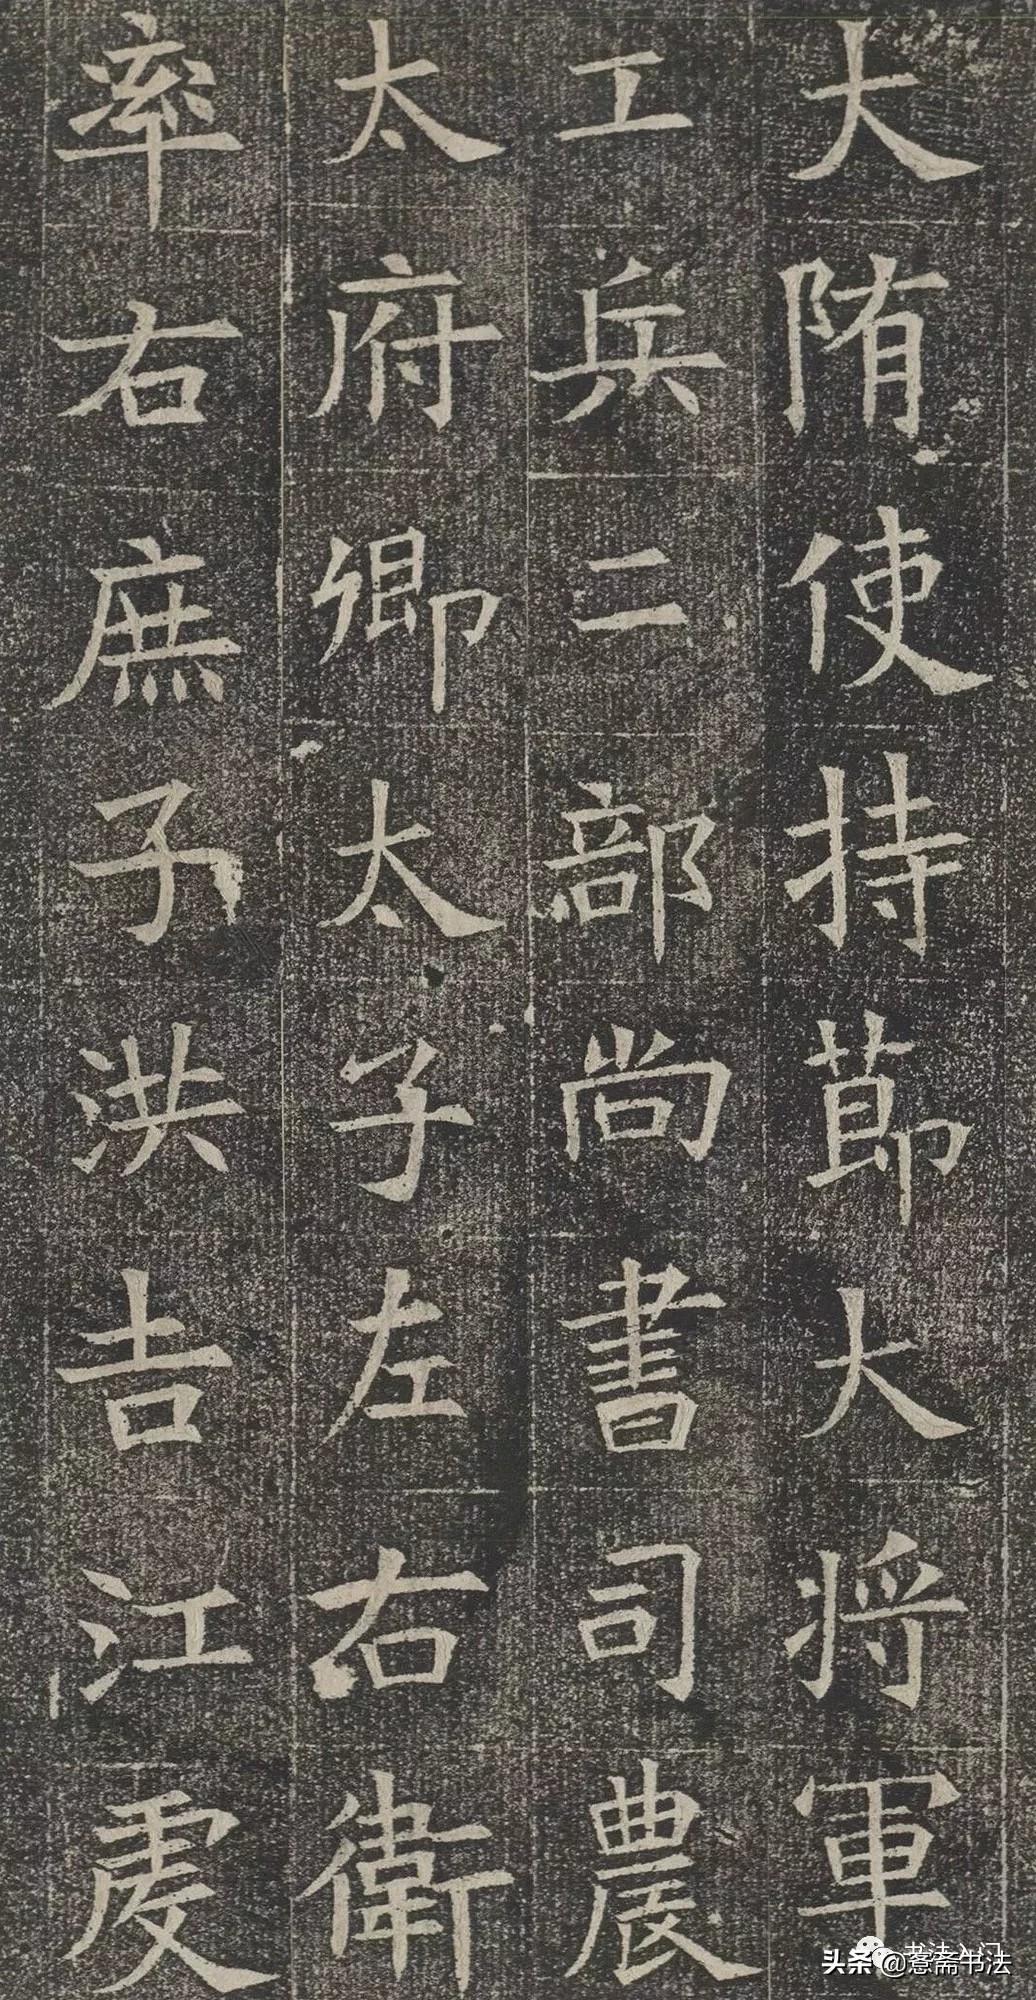 大陏使持莭大将軍
工兵二部尚書司農
太府卿太子左右衛
率右庶子洪吉江虔
书法入门
头条 @愙斋书法